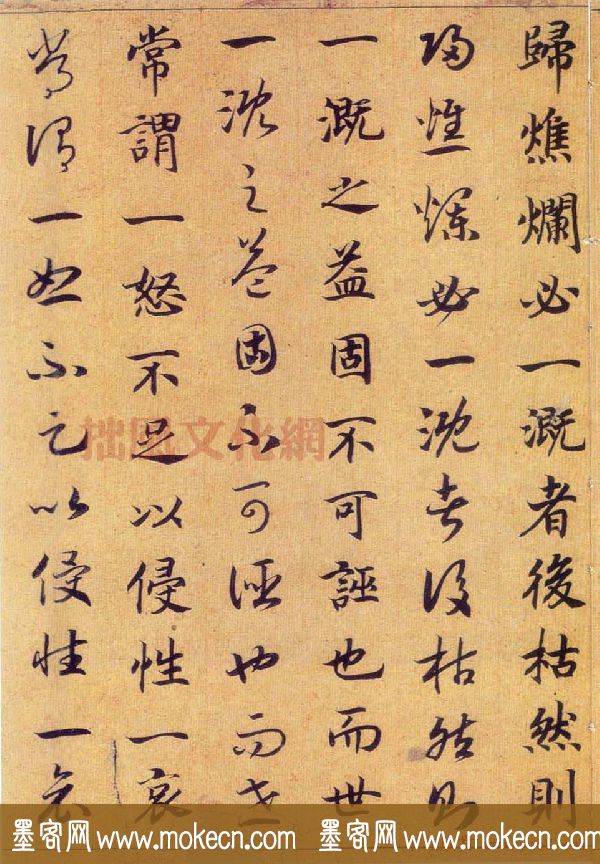 歸燋爛必一溉者後枯然則
歸燋爛必一溉者後枯然則
一溉之益固不可誣也而世
一溉之益固不可誣也而世
常謂一怒不足以侵性一哀
常謂一怒不足以侵性一哀
拙風文化網
墨客网 www.mokecn.com 墨客网 www.mokecn.com